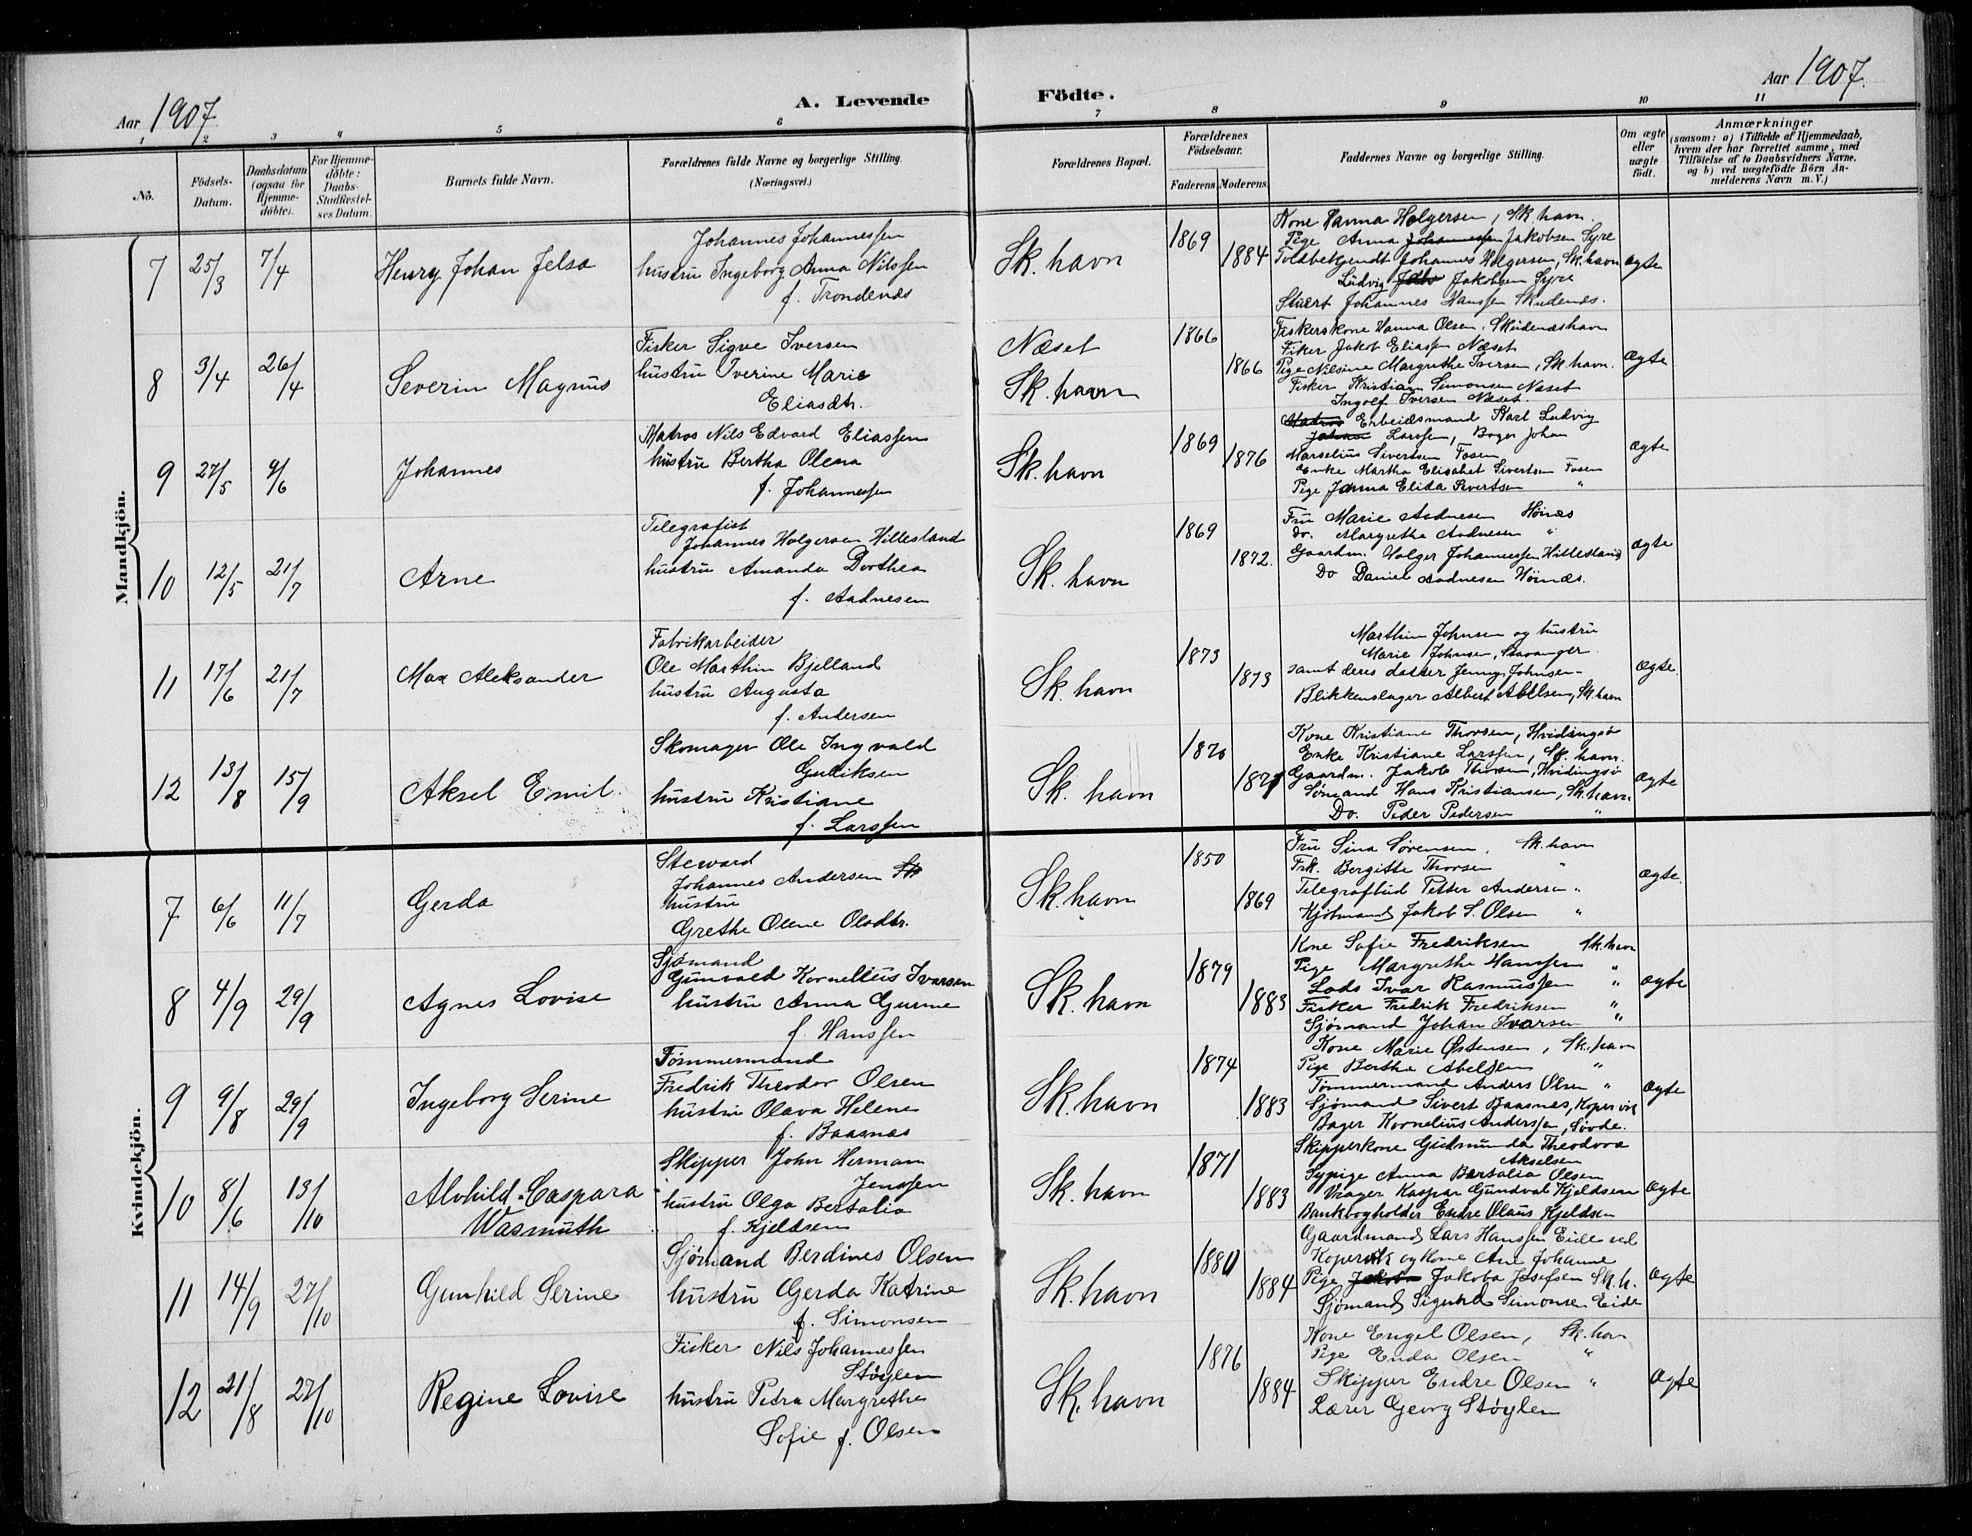 Aar 1907
A. Levende
Födte.
Aar 1907.
1 2 3 4 5 6 7 8 9 10 11
No.
Födsels-
Datum.
Daabsdatum
(ogsaa for
Hjemme-
döbte).
For Hjemme-
döbte:
Daabs-
Stadfæstel-
ses Datum.
Barnets fulde Navn.
Forældrenes fulde Navne og borgerlige Stilling.
(Næringsvei.)
Forældrenes Bopæl.
Forældrenes
Födselsaar.
Faderens
Moderens
Faddernes Navne og borgerlige Stilling.
Om ægte
eller
uægte
födt.
Anmærkninger
(saasom: a) i Tilfælde af Hjemmedaab,
hvem der har forrettet samme, med
Tilföielse af to Daabsvidners Navne.
og b) ved uægtefödte Börn An-
melderens Navn m. V.)
Mandkjön.
7 25/3 7/4 Henry Johan Jelsa
Johannes Johannessen
hustru Ingeborg Anna Nilssen
f. Trondenes
Sk. havn 1869 1884
Kone Hanna Holgersen, Sk. havn.
Pige Anna Johannessen Jakobsen Syre
Toldbetjendt Johannes Holgersen, Sk. havn
Ludvig Jakobsen Syre
Stuert Johannes Hanssen Skudenes.
ægte
8 3/4 26/4 Severin Magnus
Fisker Sigve Iversen
hustru Iverine Marie
Eliasdtr.
Næset
Sk. havn 1866 1866
Fiskerskone Hanna Olsen, Skudeneshavn
Fisker Jakob Eliassen Næset
Pige Nilsine Margrethe Iversen, Sk. havn.
Fisker Kristian Simonsen Næset
Ingolf Iversen Næset.
ægte
9 27/5 9/6 Johannes
Matros Nils Edvard Eliassen
hustru Bertha Olena
f. Johannessen
Sk. havn 1869 1876
Matros Erbeidsmand Karl Ludvig
Larssen, Bager Johan
Marselius Sivertsen Fosen
Enke Martha Elisabet Sivertsen Fosen
Pige Janna Elida Sivertsen "
ægte
10 12/5 21/7 Arne
Telegrafist
Johannes Holgersen Hillesland
hustru Amanda Dorthea
f. Aadnesen
Sk. havn 1869 1872.
Fru Marie Aadnesen Hönæs
Do. Margrethe Aadnesen "
Gaardm. Holger Johannessen Hillesland
Do Daniel Aadnesen Hönæs.
ægte
11 17/6 21/7 Max Aleksander
Fabrikarbeider
Ole Marthin Bjelland
hustru Augusta
f. Andersen
Sk. havn 1873 1873
Marthin Johnsen og hustru
Marie Johnsen, Stavanger.
samt deres datter Jenny Johnsen-
Blikkenslager Albert Abelsen, Sk. havn
ægte.
12 13/8 15/9 Aksel Emil.
Skomager Ole Ingvald
Gudiksen
hustru Kristiane
f. Larssen
Sk. havn 1870 1871
Kone Kristiane Thorsen, Hvidingsø
Enke Kristiane Larssen, Sk. havn.
Gaardm. Jakob Thorsen, Hvidingsø
Sømand Hans Kristiansen, Sk. havn.
Do. Peder Pedersen "
ægte
Kvindekjön.
7 6/6 11/7 Gerda
Steward
Johannes Andersen Sk
hustru
Grethe Olene Olsdtr.
Sk. havn 1850 1869
Fru Sina Sørensen, Sk. havn
Frk. Bergitte Thorsen "
Telegrafbud Petter Andersen "
Kjøbmand Jakob S. Olsen "
ægte.
8 4/9 29/9 Agnes Lovise
Sjømand
Gunvald Kornelius Ivarsen
hustru Anna Gurine
f. Hanssen
Sk. havn 1879 1883
Kone Sofie Fredriksen Sk. havn
Pige Margrethe Hanssen "
Lods Ivar Rasmussen "
Fisker Fredrik Fredriksen "
Sjømand Johan Ivarsen "
ægte
9 9/8 29/9 Ingeborg Serine
Tømmermand
Fredrik Theodor Olsen
hustru Olava Helene
f. Baasnæs
Sk. havn 1874 1883
Kone Marie Østensen, Sk. havn
Pige Berthe Abelsen "
Tømmermand Anders Olsen "
Sjømand Sivert Baasnæs, Kopervik
Bager Kornelius Anderssen, Sövde.
ægte
10 8/6 13/10 Alvhild Caspara
Wasmuth
Skipper John Herman
Jenssen
hustru Olga Bertalia
f. Kjeldsen
Sk. havn 1871 1883
Skipperkone Gudmunda Theodora
Akselsen
Sypige Anna Bertalia Olsen
Vrager Kaspar Gundval Kjeldsen
Bankbogholder Endre Olaus Kjeldsen
ægte
11 14/9 27/10 Gunhild Serine
Sjømand Berdines Olsen
hustru Gerda Katrine
f. Simonsen
Sk. havn 1880 1884
Gaardmand Lars Hanssen Eide ved
Kopervik og kone Ane Johanne
Pige Jakoba Josefsen Sk. h.
Sjømand Sigurd Simonsen Eide
ægte
12 21/8 27/10 Regine Lovise
Fisker Nils Johannessen
Støylen
hustru Petra Margrethe
Sofie f. Olsen
Sk. havn 1876 1884
Kone Engel Olsen, Sk. havn
Pige Enda Olsen "
Skipper Endre Olsen "
Lærer Georg Støylen
ægte